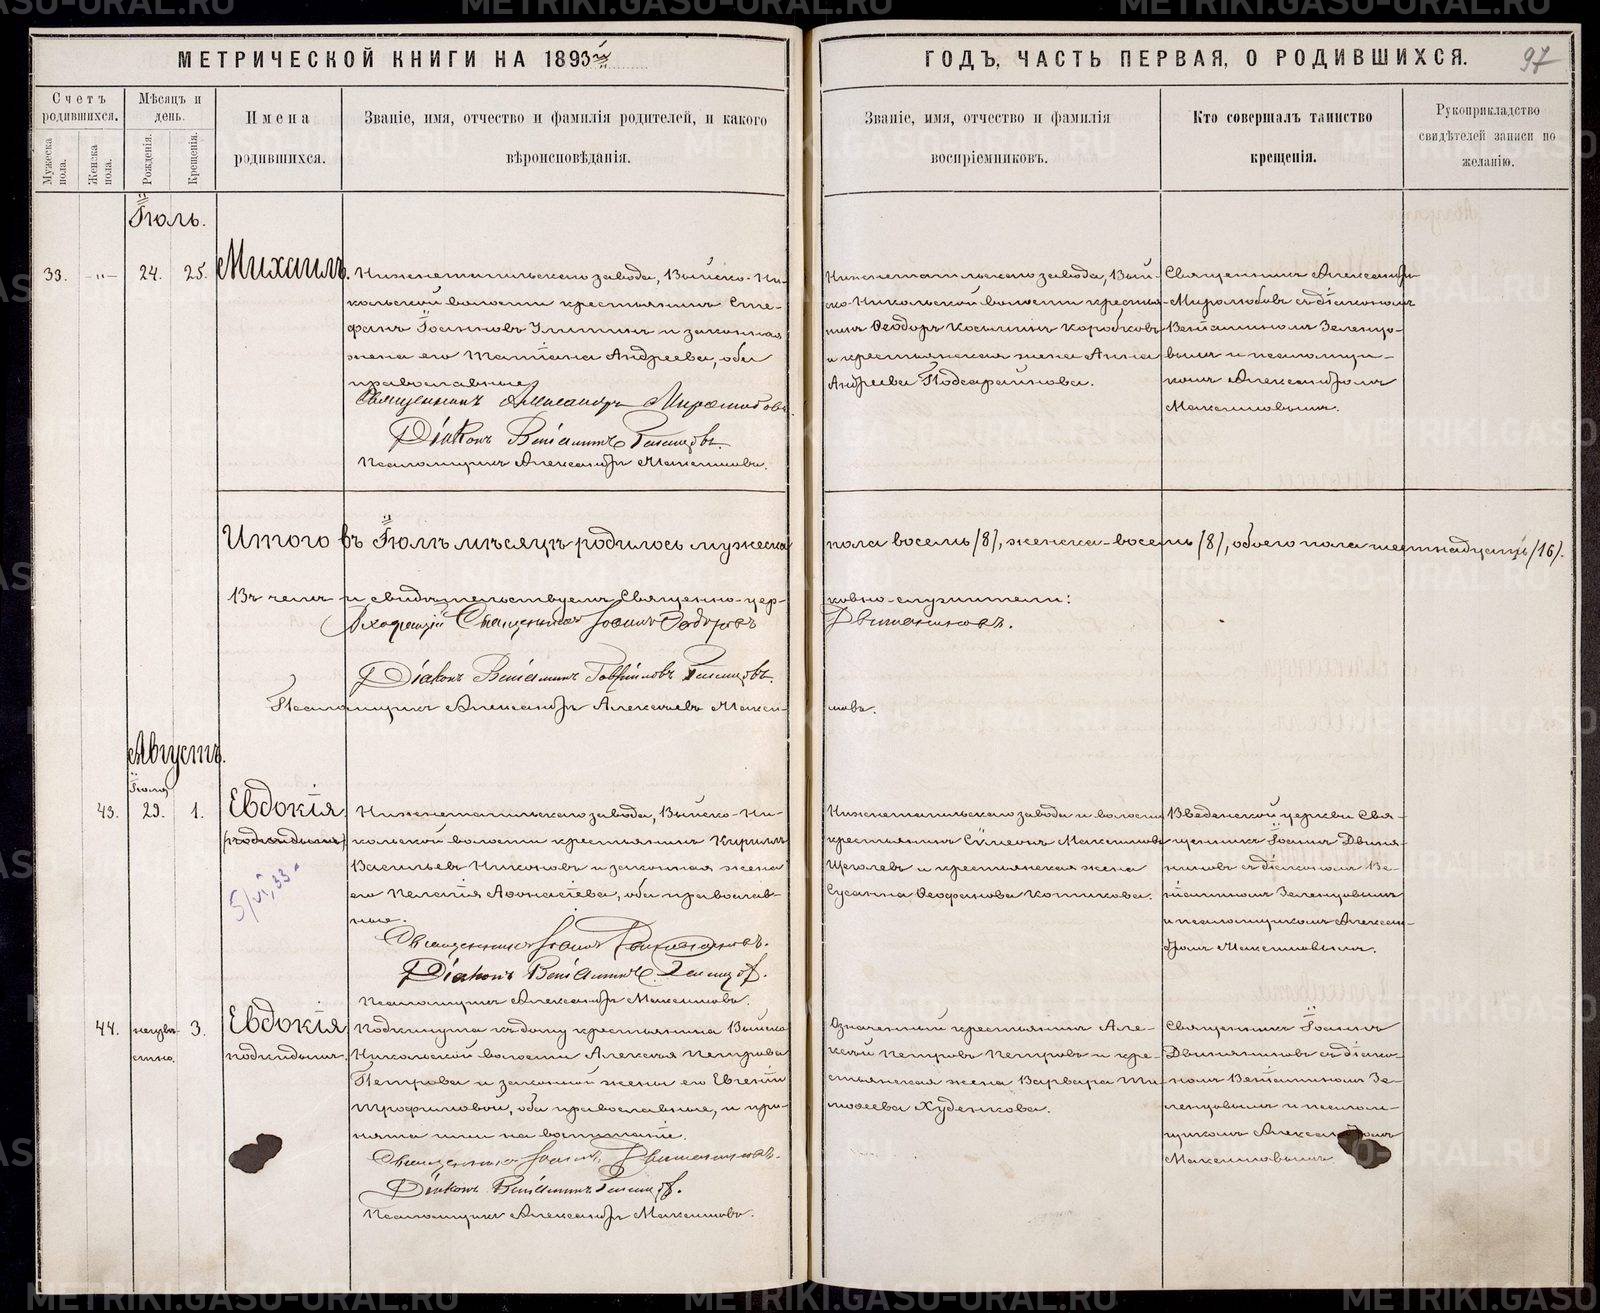 МЕТРИЧЕСКОЙ КНИГИ НА 1893
ГОДЪ, ЧАСТЬ ПЕРВАЯ, О РОДИВШИХСЯ.
97
Счетъ родившихся.
Мѣсяцъ и день.
Имена родившихся.
Званіе, имя, отчество и фамилія родителей, и какого вѣроисповѣданія.
Званіе, имя, отчество и фамилія воспріемниковъ.
Кто совершалъ таинство крещенія.
Рукоприкладство свидѣтелей записи по желанію.
Мужеска пола.
Женска пола.
Рожденія.
Крещенія.
Іюль.
33.
-"-
24.
25.
Михаилъ.
Нижнетагильскаго завода, Выйско-Ни-
кольской волости крестьянинъ Сте-
фанъ Іоанновъ и законная
жена его Татіана Андреева, оба
православные
Священникъ Александръ Миролюбовъ
Діаконъ Веніаминъ Зеленцовъ
Псаломщикъ Александръ Максимовъ.
Нижнетагильскаго завода, Вый-
ско-Никольской волости кресть-
нинъ Ѳеодоръ Косьминъ Коробковъ
и крестьянская жена Анна
Андреева
Священникъ Александръ
Миролюбовъ съ діакономъ
Веніаминомъ Зеленцо-
вымъ и псаломщи-
комъ Александромъ
Максимовымъ.
Итого въ Іюлѣ мѣсяцѣ родилось мужеска
пола восемь /8/, женска-восемь /8/, обоего пола шестнадцать /16/.
Въ чемъ и свидѣтельствуемъ Священно-цер-
ковно-служители:
Священникъ Іоаннъ
Двиняниновъ.
Діаконъ Веніаминъ Гавріиловъ Зеленцовъ.
Псаломщикъ Александръ Алексѣевъ Макси-
мовъ.
Августъ.
Іюля
43.
29.
1.
Евдокія
5/VI, 33
Нижнетагильскаго завода, Выйско-Ни-
кольской волости крестьянинъ Кириллъ
Васильевъ Никоновъ и законная жена
его Пелагія Аѳонасіева, оба православ-
ные.
Священникъ Іоаннъ Двиняниновъ.
Діаконъ Веніаминъ Зеленцовъ.
Псаломщикъ Александръ Максимовъ.
Нижнетагильскаго завода и волости
крестьянинъ Сѵмеонъ Максимовъ
Щеголевъ и крестьянская жена
Сусанна Ѳеофанова Котикова.
Введенской церкви Свя-
щенникъ Іоаннъ Двиня-
ниновъ съ діакономъ Ве-
ніаминомъ Зеленцовымъ
и псаломщикомъ Алексан-
дромъ Максимовымъ.
44.
неизвѣ-
стно.
3.
Евдокія
подкидышъ.
Подкинута къ дому крестьянина Выйско
Никольской волости Алексѣя Петрова
Петрова и законной жены его Евгеніи
Трофимовой, оба православные, и при-
нята ими на воспитаніе.
Священникъ Іоаннъ Двиняниновъ.
Діаконъ Веніаминъ Зеленцовъ.
Псаломщикъ Александръ Максимовъ.
Означенный крестьянинъ Але-
ксѣй Петровъ Петровъ и кре-
стьянская жена Варвара Ти-
моѳеева Худенкова.
Священникъ Іоаннъ
Двиняниновъ съ діако-
номъ Веніаминомъ Зе-
ленцовымъ и псалом-
щикомъ Александромъ
Максимовымъ.
METRIKI.GASO-URAL.RU